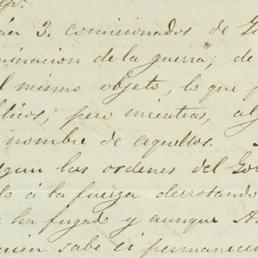 3. comisionados de
minacion de la guerra; de
mismo objeto, lo que p
blicos, pero mientras, al
nombre de aquellos.
segun las ordenes del Go
lo á la fuerza derrotando
ha fugado y aunque
quien sabe si permanecer